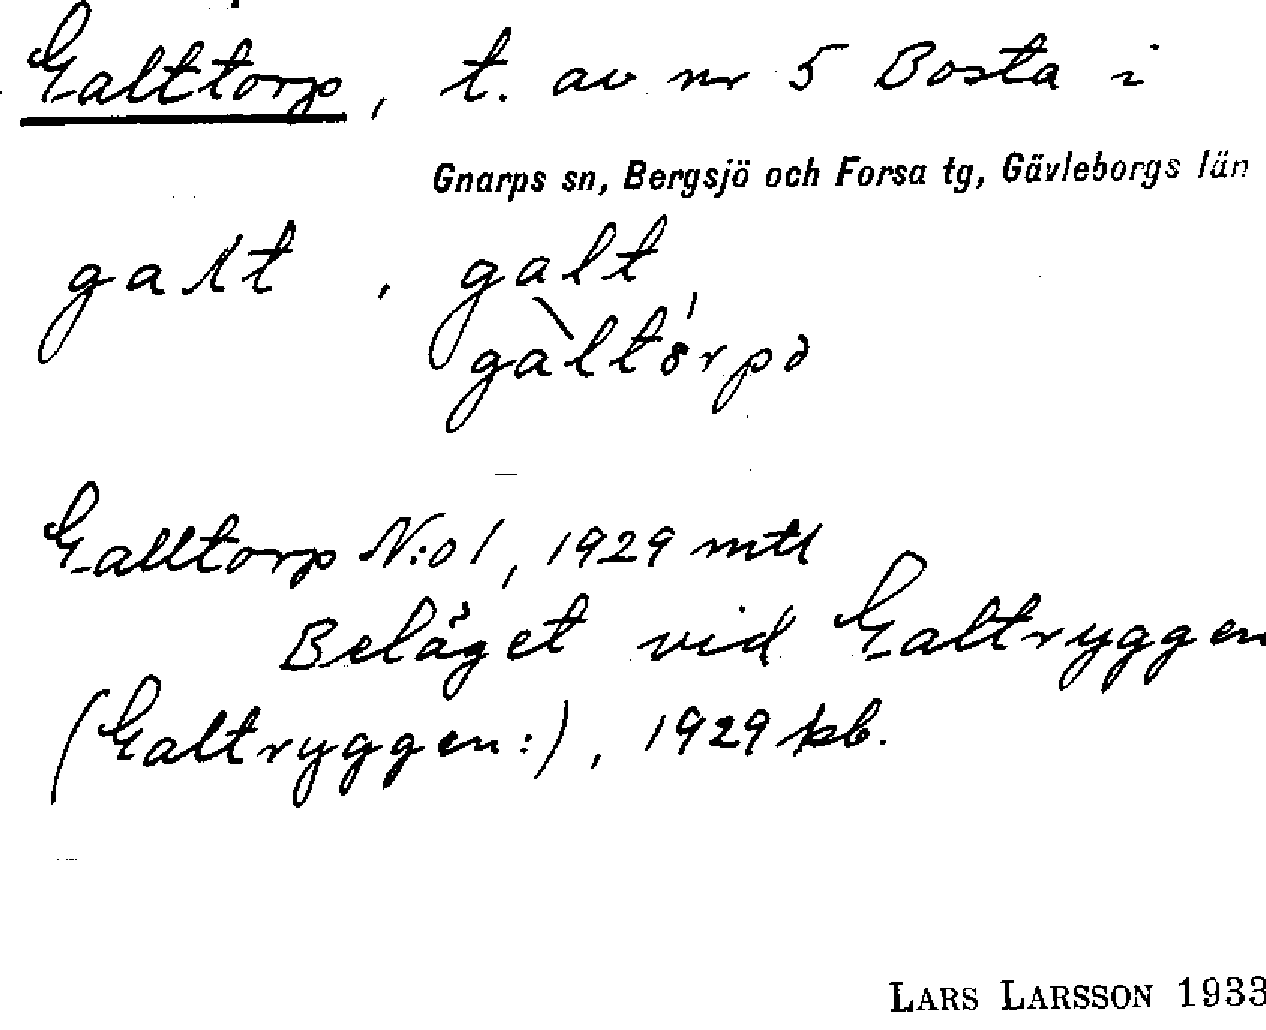 Galttorp, t. av nr 5 Bosta i
Gnarps sn, Bergsjö och Forsa tg, Gävleborgs län
galt, galt
gàltórpə
Galltorp N:o 1, 1929 mtl
Beläget vid Galtryggen
(Galtryggen:), 1929 kb.
LARS LARSSON 1933